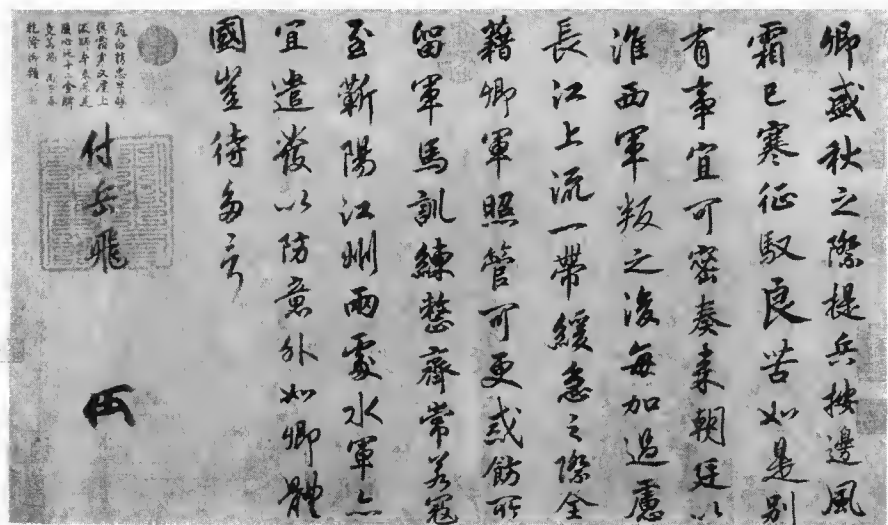 卿盛秋之際提兵按邊風
霜已寒征馭良苦如是別
有事宜可密奏来朝廷以
淮西軍叛之後每加過慮
長江上流一帶緩急之際全
藉卿軍照管可更戒飭所
留軍馬訓練整齊常若寇
至蘄陽江州兩處水軍亦
宜遣發以防意外如卿體
國豈待多言
付岳飛
乾隆御題